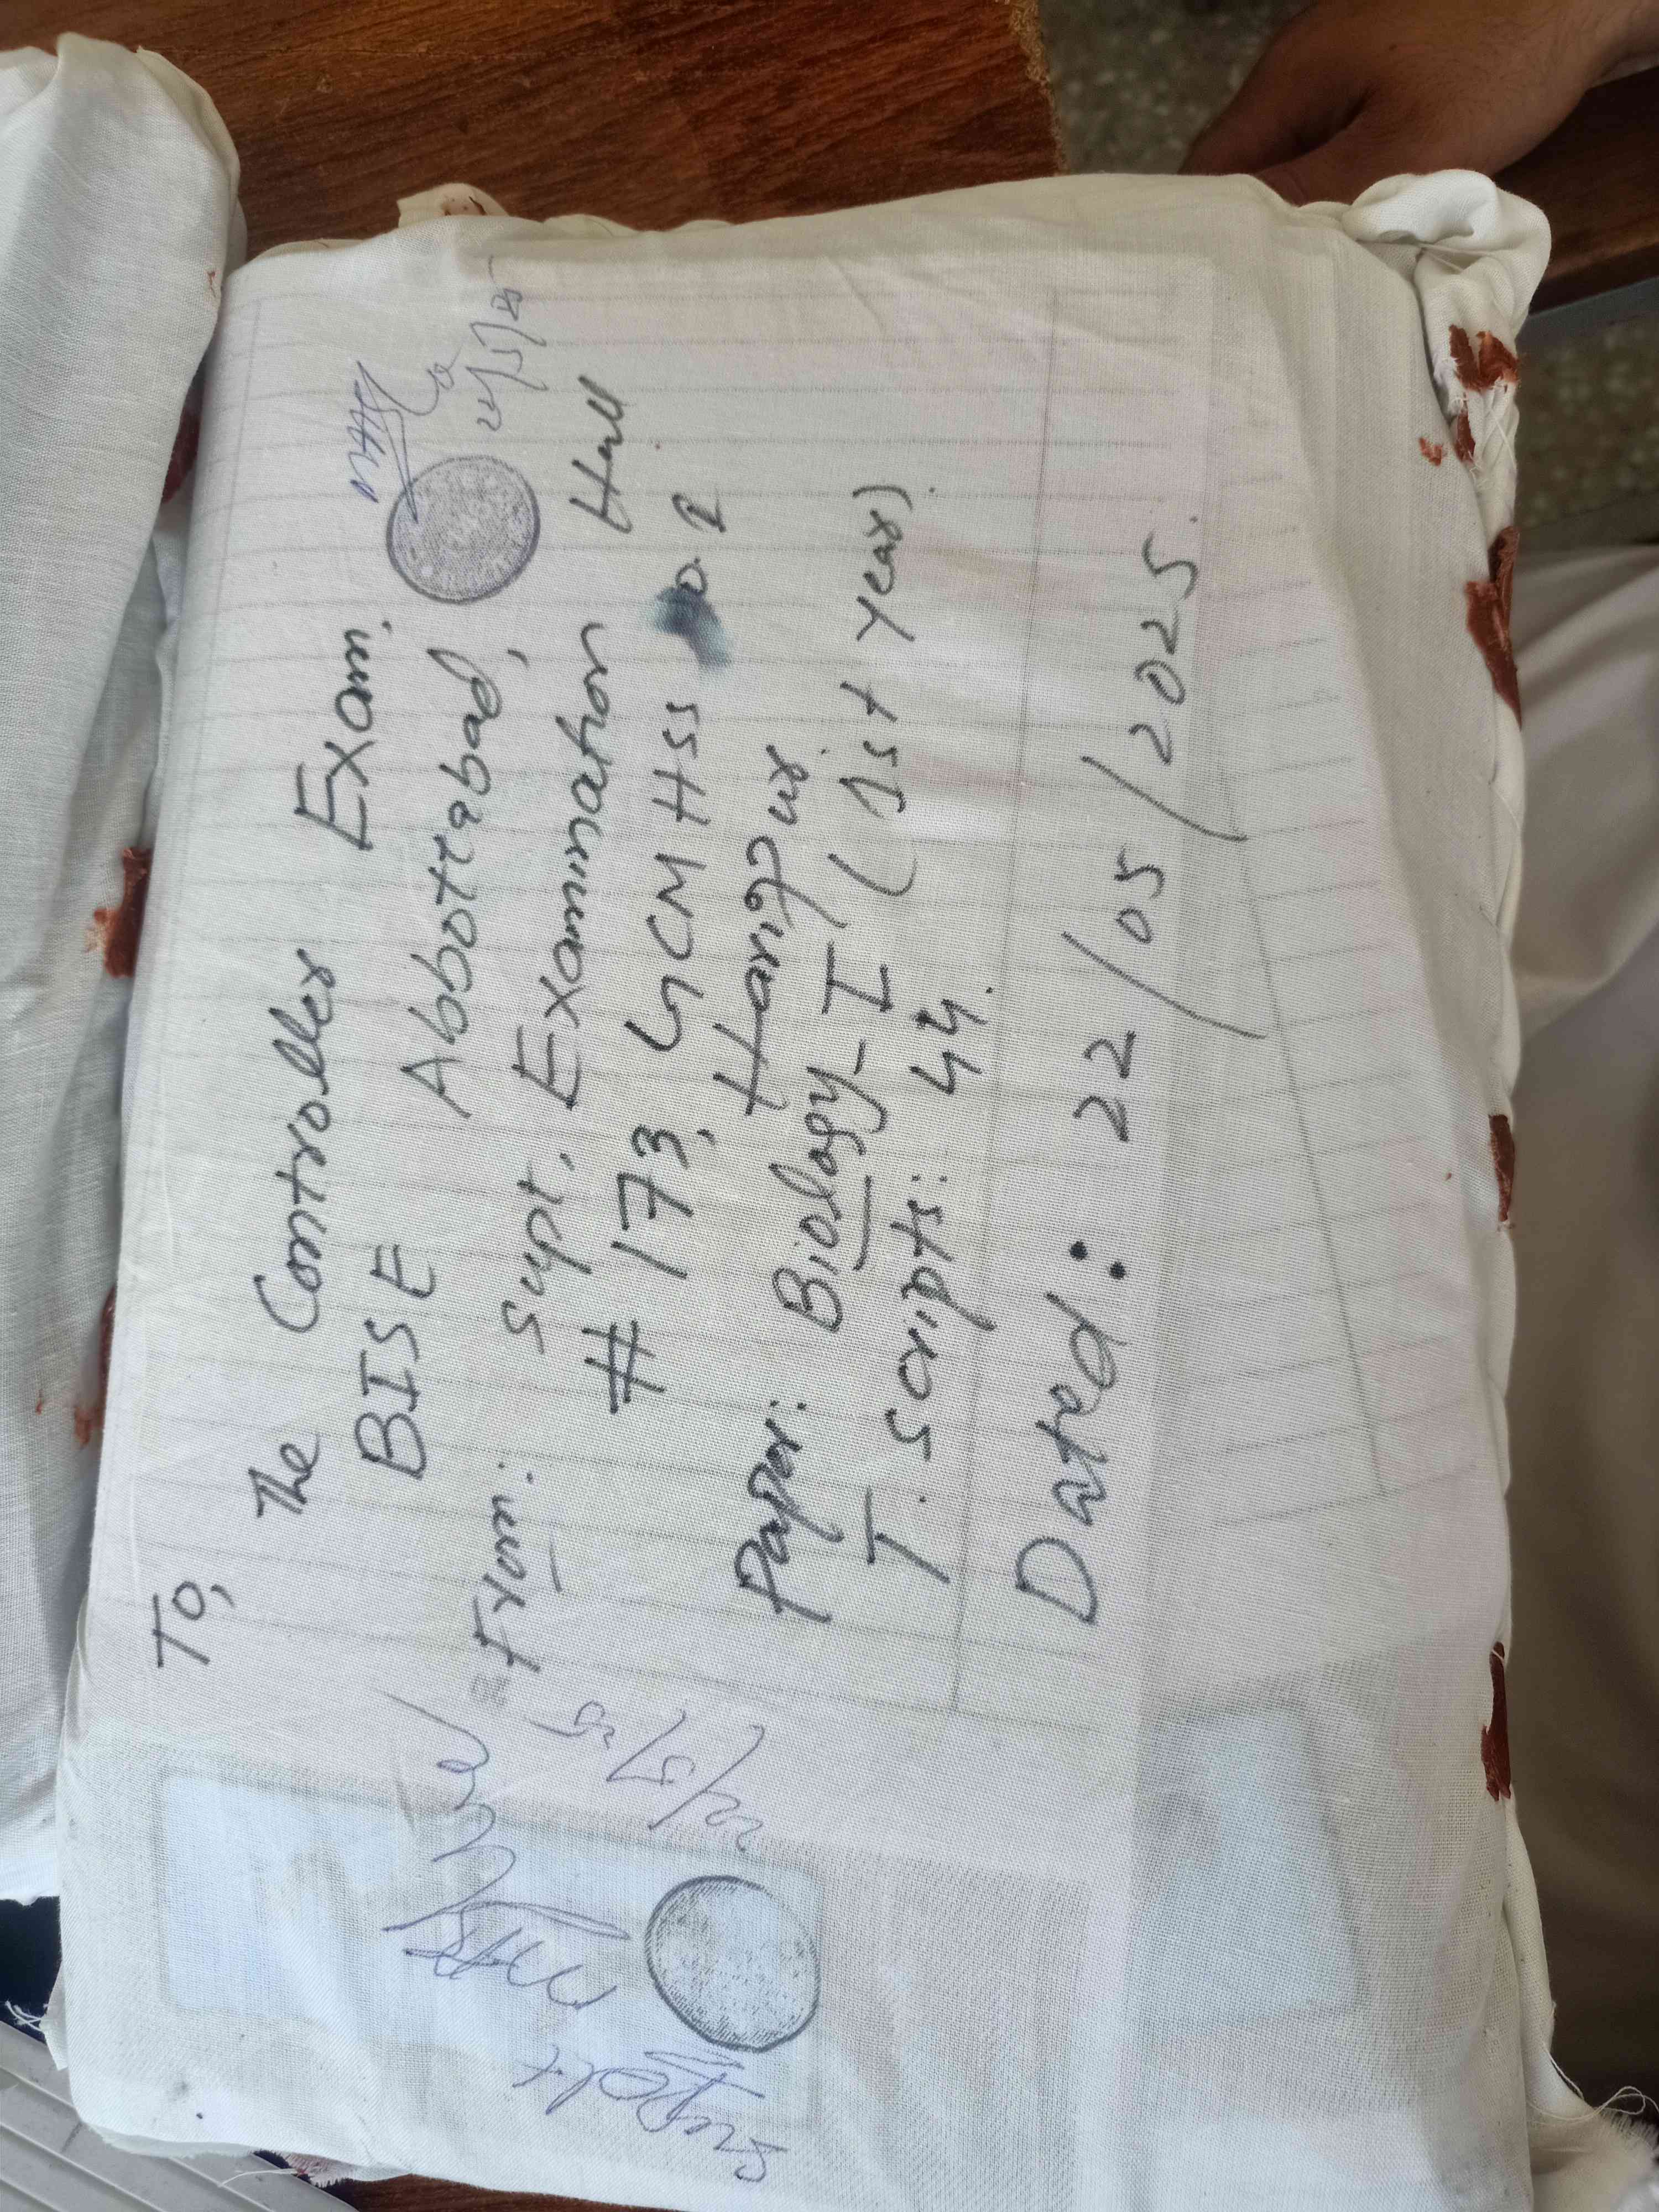 To,
The Controller Exam.
BISE Abbottabad,
From: Supt, Examination Hall
# 173, GCMHSS No. 1
Haripur
Paper: Biology-I (1st year)
T. Scripts: 44.
Dated: 22/05/2025.
22/5/25
22/5/25
Supdt